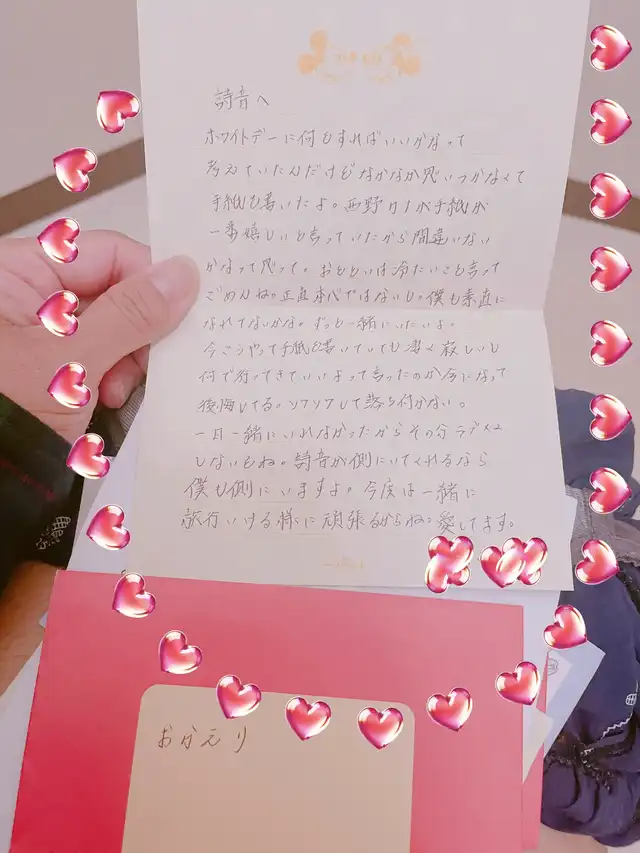 詩音へ
ホワイトデーに何もすればいいかなって
考えていたんだけどなかなか思いつかなくて
手紙を書いたよ。西野カナが手紙が
一番嬉しいと言っていたから間違いない
かなって思って。おとといは冷たいこと言って
ごめんね。正直本心ではないし。僕も素直に
なれてないかな。ずっと一緒にいたいよ。
今こうやって手紙を書いていても凄く寂しいし
何で行ってきていいよって言ったのか今になって
後悔してる。ソワソワして落ち付かない。
一日一緒にいれなかったからその分ラブメ
しないもね。詩音が側にいてくれるなら
僕も側にいますよ。今度は一緒に
旅行いける様に頑張るからね。愛してます。
おかえり